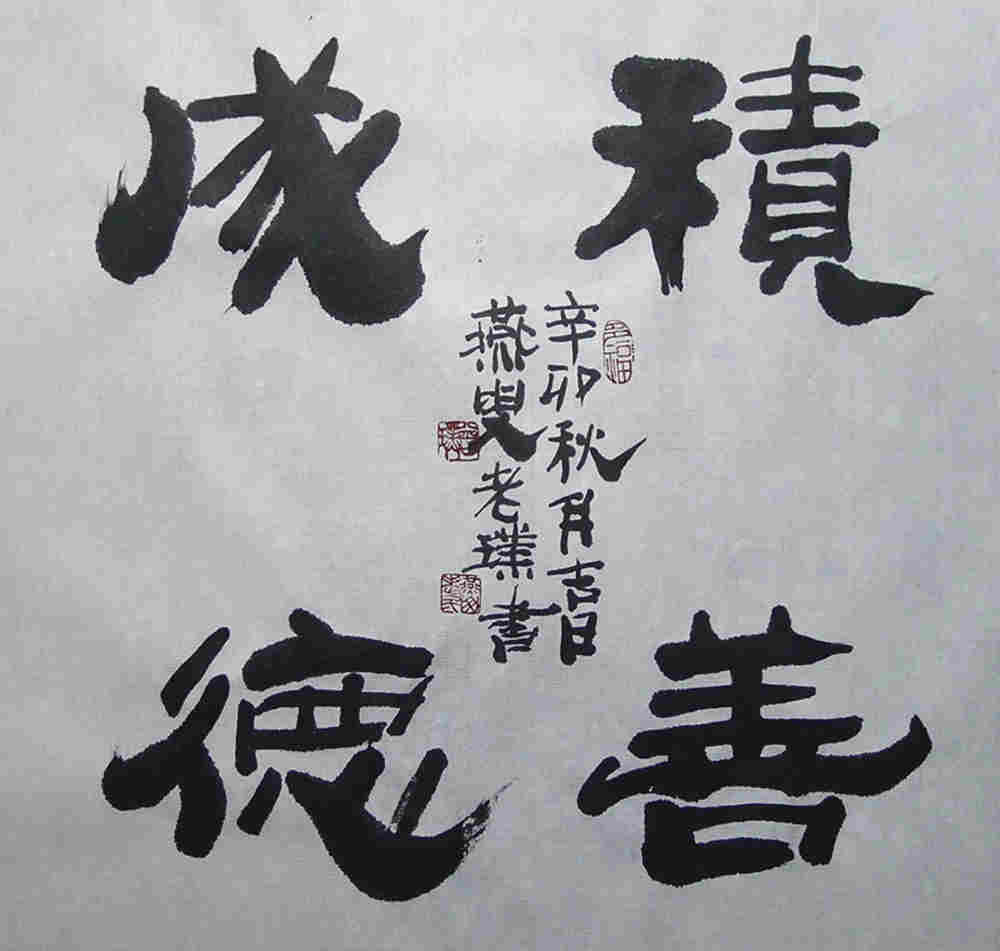 積善
成德
辛卯秋月吉日
燕叟老璞書